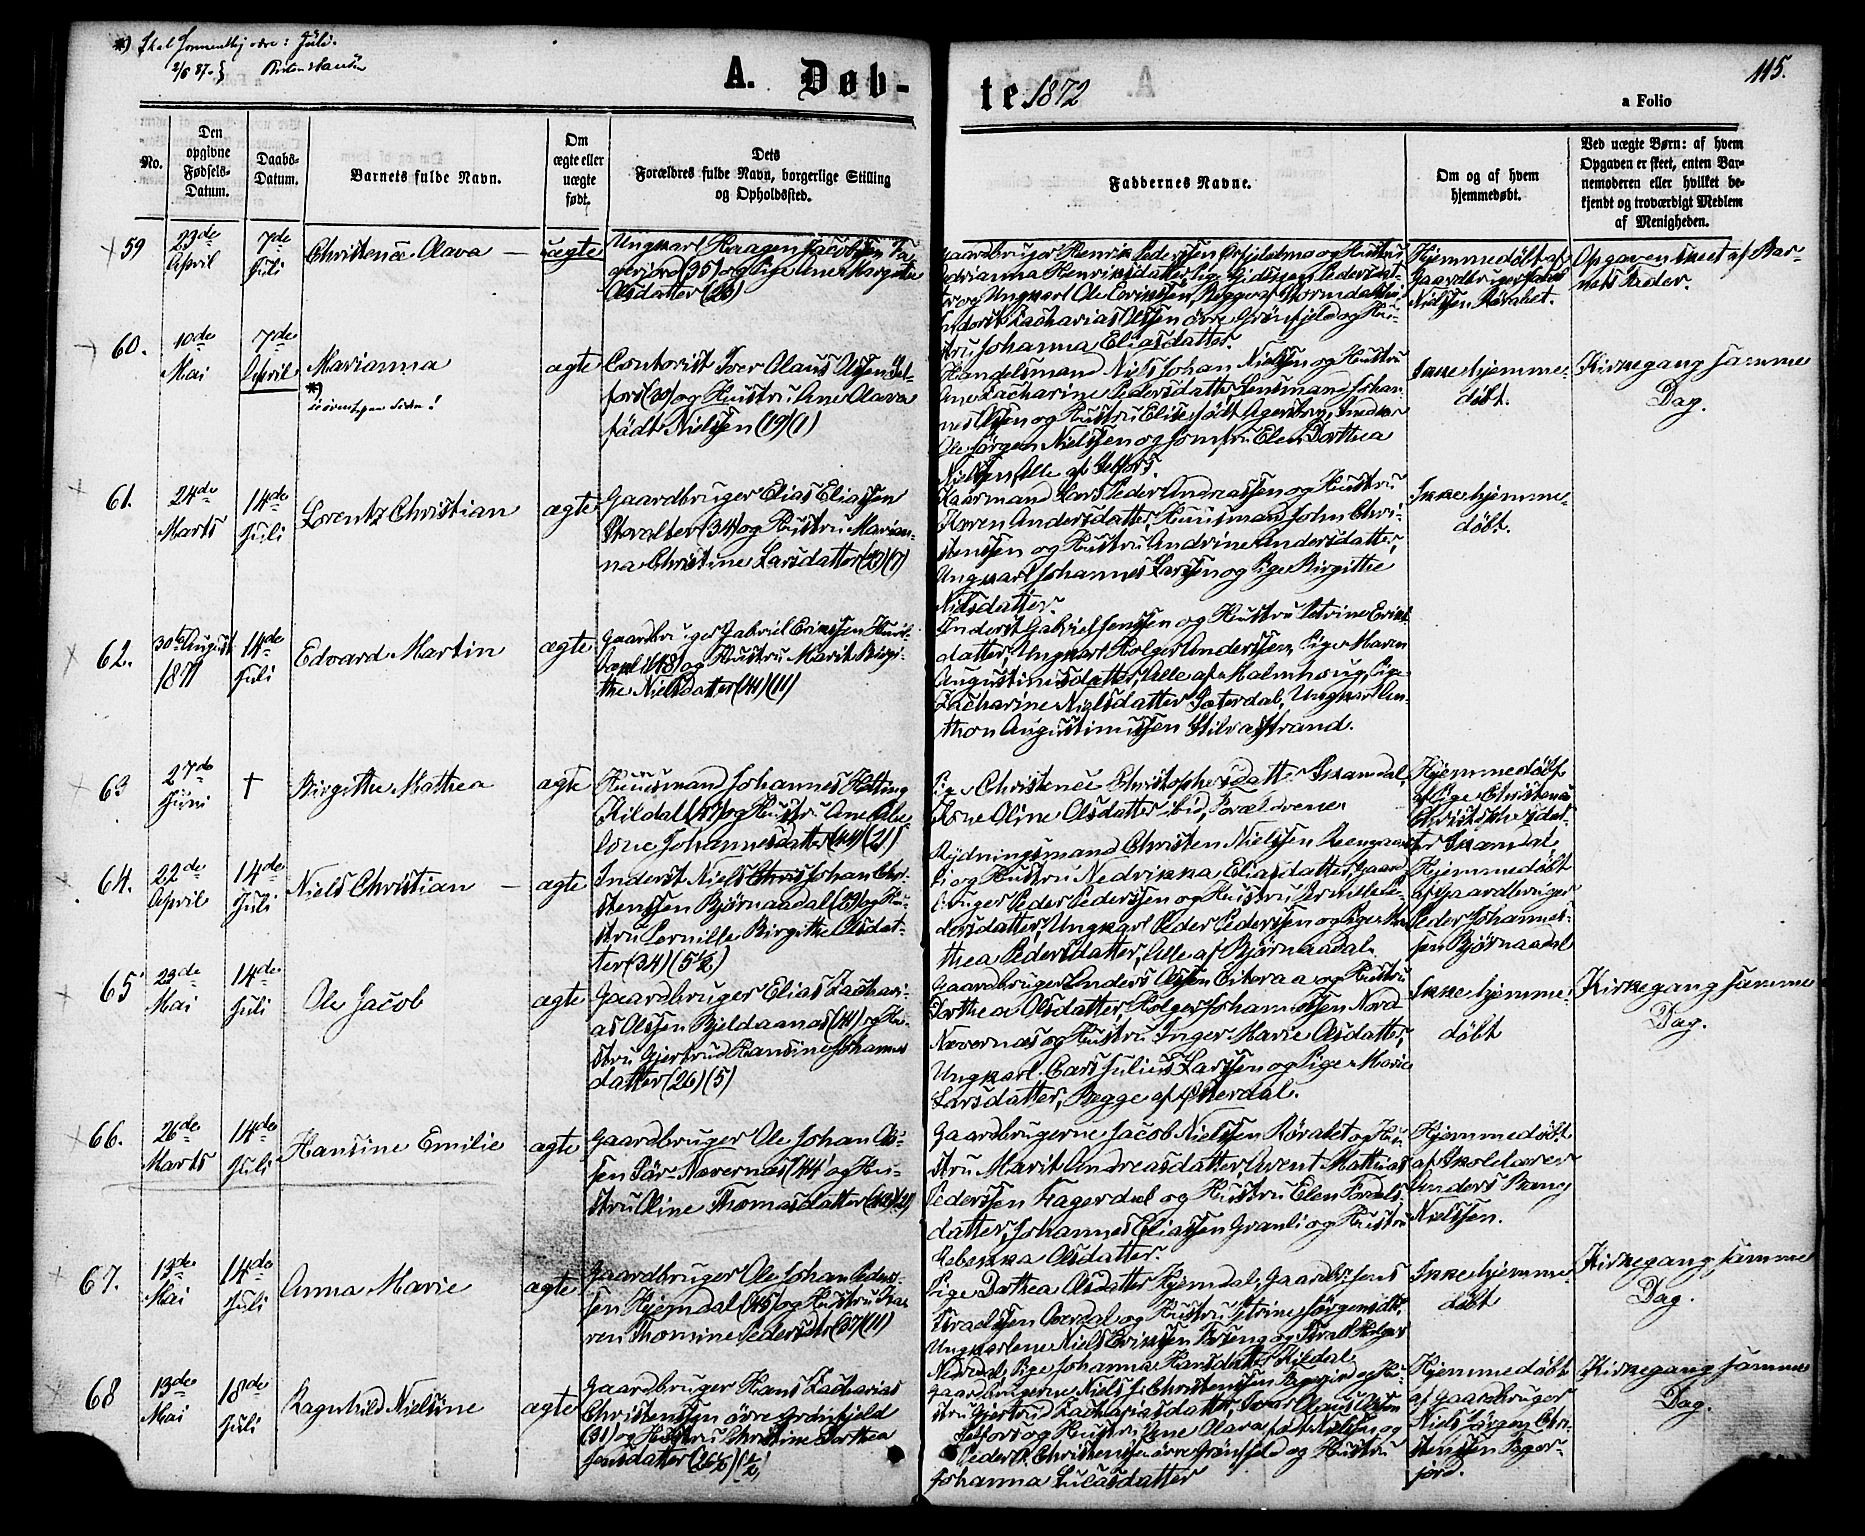 *) Skal formentlig være: Juli.
2/8 87.
A. Døb-
te 1872
115.
a Folio
No.
Den
opgivne
Fødsels-
Datum.
Daabs-
Datum.
Barnets fulde Navn.
Om
ægte eller
uægte
født.
Dets
Forældres fulde Navn, borgerlige Stilling
og Opholdssted.
Faddernes Navne.
Om og af hvem
hjemmedøbt.
Ved uægte Børn: af hvem
Opgaven er skeet, enten Bar-
nemoderen eller hvilket be-
kjendt og troværdigt Medlem
af Menigheden.
59
23de
April
7de
Juli
Christence Olava
uægte
Ungkarl Haagen Jacobsen Fa-
gerjord (35) og Pige Ane Margrethe
Olsdatter (26)
Gaardbruger Henrik Pedersen
Adrianna Henriksdatter
og Ungkarl Ole Erikssen, Begge af Stormdalshei
Inderst Zacharias Olssen øvre Grønfjeld og Hu-
stru Johanna Eliasdatter.
Hjemmedøbt af
Gaardbruger Jacob
Nielssen Røvatet.
Opgaven skeet af Bar-
nets Fader.
60.
10de
Mai
7de
April
Marianna
*)
ægte
Contorist Iver Olaus Olssen Sel-
fors (30) og Hustru Ane Olava
født Nielsen (19) (1)
Handelsmand Niels Johan Nielssen og Hustru
Ane Zacharine Pedersdatter, Lensmand Johan-
nes Olsen og Hustru Elise født Agersborg, Snedker
Ole Jørgen Nielssen og Jomfru Elen Dorthea
Nielsen, Alle af Selfors.
Ikke hjemme-
døbt.
Kirkegang samme
Dag.
61.
24de
Marts
14de
Juli
Lorentz Christian
ægte
Gaardbruger Elias Eliassen
Storalter (34) og Hustru Marian-
na Christine Larsdatter (29) (7)
Kaarmand Lars Peder Andreassen og Hustru
Karen Andersdatter, Huusmand John Chri-
stenssen og Hustru Andrine Andersdatter,
Ungkarl Johannes Larssen og Pige Birgitthe
Nilsdatter.
Ikke hjemme-
døbt.
62.
30te August
1871
14de
Juli
Edvard Martin
ægte
Gaardbruger Gabriel Erikssen
(48) og Hustru Marit Birgi-
the Nielsdatter (41) (11)
Inderst Gabriel Jenssen og Hustru Petrine Eriks-
datter, Ungkarl Holger Anderssen, Pige Maren
Augustinusdatter, Alle af Malmhaug, Pige
Zacharine Nielsdatter Sæterdal, Ungkarl An-
thon Augustinussen Stilvasstrand.
63
27de
Juni
†
Birgitthe Mathea
ægte
Huusmand Johannes Hetting
Kildal (47) og Hustru Ane Abe-
lone Johannesdatter (44) (21)
Pige Christence Christophersdatter Skamdal,
Kone Oline Olsdatter ibid, Forældrene
Hjemmedøbt
af Pige Christence
Christophersdat-
ter Skamdal
64.
22de
April
14de
Juli
Niels Christian
ægte
Inderst Niels Johan Chri-
stenssen Bjørnaadal (29) og Hu-
stru Pernille Birgithe Olsdat-
ter (34) (5½)
Rydningsmand Christen Nielssen
og Hustru Nedrikka Eliasdatter, Gaard-
bruger Peder Pederssen og Hustru Pernille Pe-
dersdatter, Ungkarl Peder Pederssen og Pige
thea Pedersdatter, Alle af Bjørnaadal.
Hjemmedøbt
af Gaardbruger
Peder Johannes-
sen Bjørnaadal
65
23de
Mai
14de
Juli
Ole Jacob
ægte
Gaardbruger Elias Zachari-
as Olssen Bjeldaanæs (41) og Hu-
stru Gjertrud Hansine Johannes-
datter (26) (5)
Gaardbruger Anders Olssen Hvitraa og Hustru
Dorthea Olsdatter, Holger Johannessen Nord
Nævernæs og Hustru Inger Marie Olsdatter,
Ungkarl Lars Julius Larssen og Pige Marie
Larsdatter, Begge af Østerdal.
Ikke hjemme-
døbt
Kirkegang samme
Dag.
66.
26de
Marts
14de
Juli
Hansine Emilie
ægte
Gaardbruger Ole Johan Ols-
sen Sør-Nævernæs (44) og Hu-
stru Oline Thomasdatter
Gaardbrugerne Jacob Nielssen Røvatet og Hu-
stru Marit Andreasdatter, Arent Mathias
Pederssen Fagerdal og Hustru Elen Forals-
datter, Johannes Eliassen Granli og Hustru
Rebekka Olsdatter.
Hjemmedøbt
af Skolelærer
Anders Bang
Nielssen.
67.
13de
Mai
14de
Juli
Anna Marie
ægte
Gaardbruger Ole Johan Peders-
sen Hjemdal (45) og Hustru Ka-
ren Thomine Pedersdtr (37) (11)
Pige Dorthea Olsdatter Hjemdal, Gaardbr. Jens
Israelssen Overdal og Hustru Petrine Jørgensdtr,
Ungkarlene Niels Erikssen
Nedredal, Pige Johanna Hansdatter Kildal
Ikke hjemme-
døbt
Kirkegang samme
Dag.
68
13de
Mai
18de
Juli
Ragnhild Nielsine
ægte
Gaardbruger Hans Zacharias
Christenssen øvre Grønfjeld
(31) og Hustru Christine Dorthea
Jensdatter
Gaardbrugerne Niels J. Christenssen Fagerjord og Hu-
stru Gjertrud Zachariasdatter, Iver Olaus Olsen
Selfors og Hustru Ane Olava født Nielsen og
Peder Christenssen øvre Grønfjeld og Hustru
Johanna Lucasdatter
Hjemmedøbt
af Gaardbruger
Niels Jørgen Chri-
stenssen Fager-
jord.
Kirkegang samme
Dag.